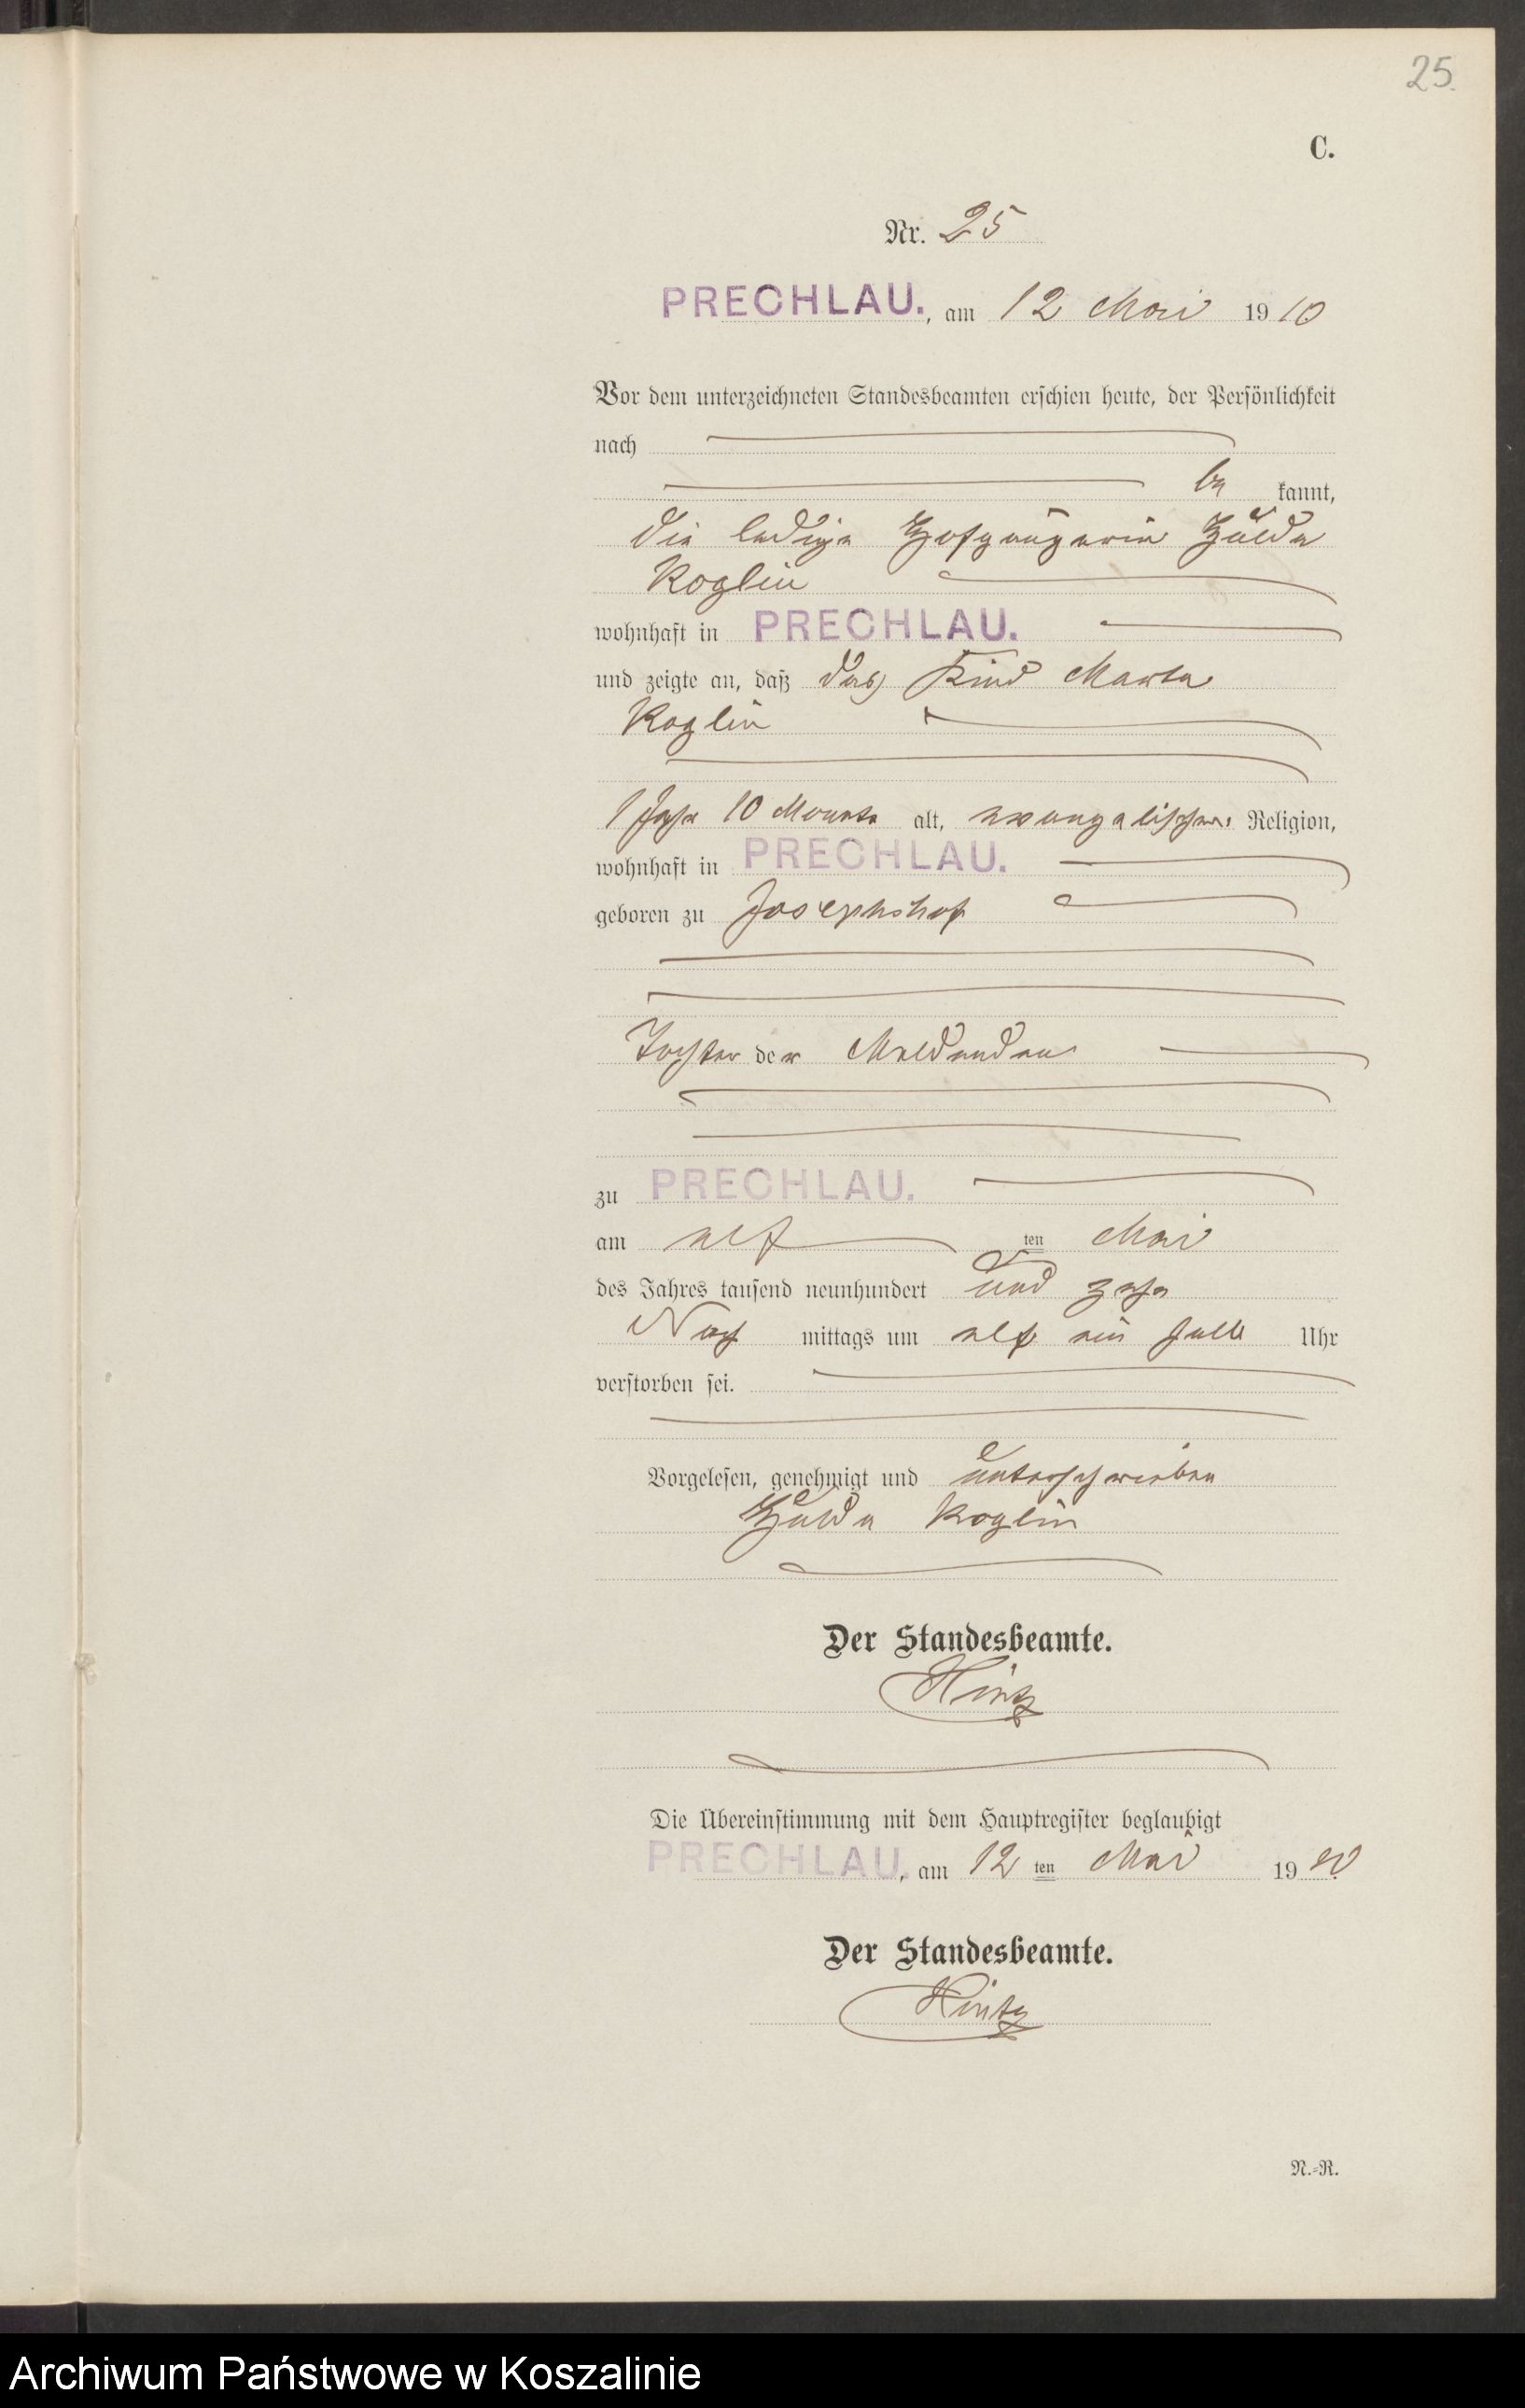 25.
C.
Nr. 25
PRECHLAU., am 12 Mai 1910
Vor dem unterzeichneten Standesbeamten erschien heute, der Persönlichkeit
nach
be kannt,
die ledige Hofgängerin Hulda
Koglin
wohnhaft in PRECHLAU.
und zeigte an, daß das Kind Marta
Koglin
1 Jahr 10 Monate alt, evangelischer Religion,
wohnhaft in PRECHLAU.
geboren zu Josephshof
Tochter der Meldenden
zu PRECHLAU.
am elf ten Mai
des Jahres tausend neunhundert und zehn
Nach mittags um elf ein halb Uhr
verstorben sei.
Vorgelesen, genehmigt und unterschrieben
Hulda Koglin
Der Standesbeamte.
Hintz
Die Übereinstimmung mit dem Hauptregister beglaubigt
PRECHLAU., am 12 ten Mai 1910
Der Standesbeamte.
Hintz
N.-R.
Archiwum Państwowe w Koszalinie